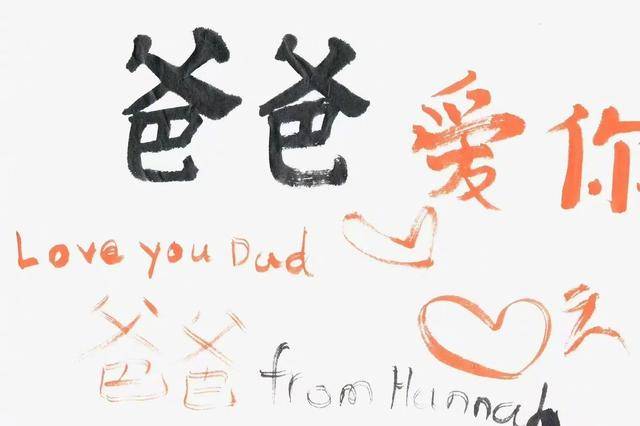 爸爸 爱你
Love you Dad
爸爸 from Hannah